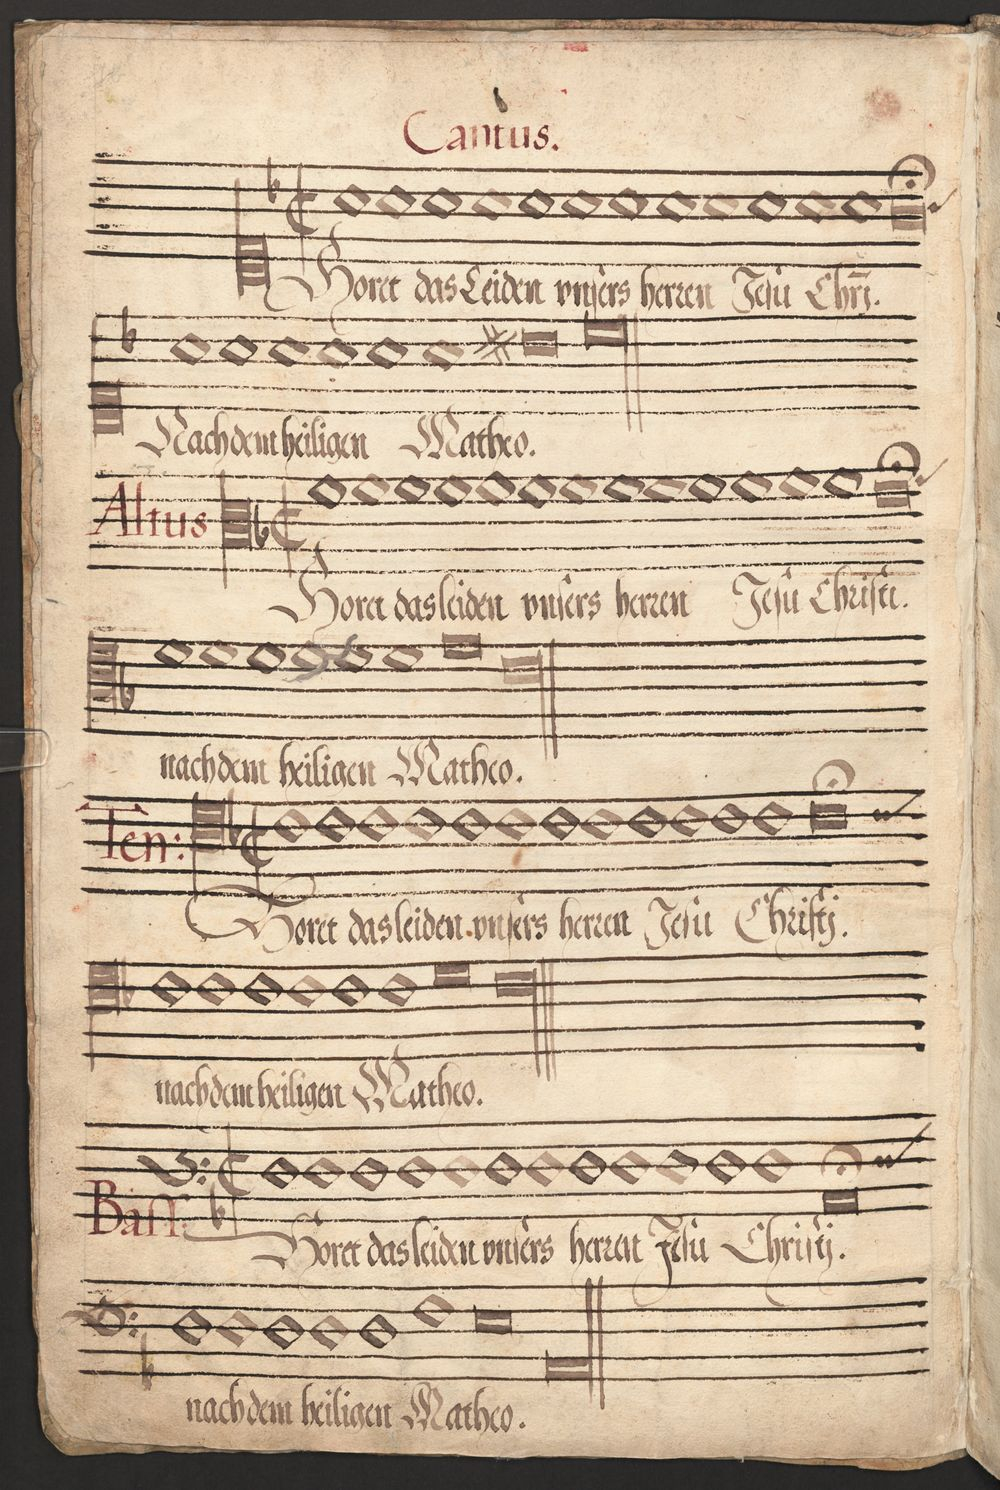 Cantus.
Horet das Leiden vnsers herren Jesu Chrj.
Nach dem heiligen Matheo.
Altus
Horet das leiden vnsers herren Jesu Christi.
nach dem heiligen Matheo.
Ten:
Horet das leiden vnsers herren Jesu Christj.
nach dem heiligen Matheo.
Bass:
Horet das leiden vnsers herren Jesu Christj.
nach dem heiligen Matheo.